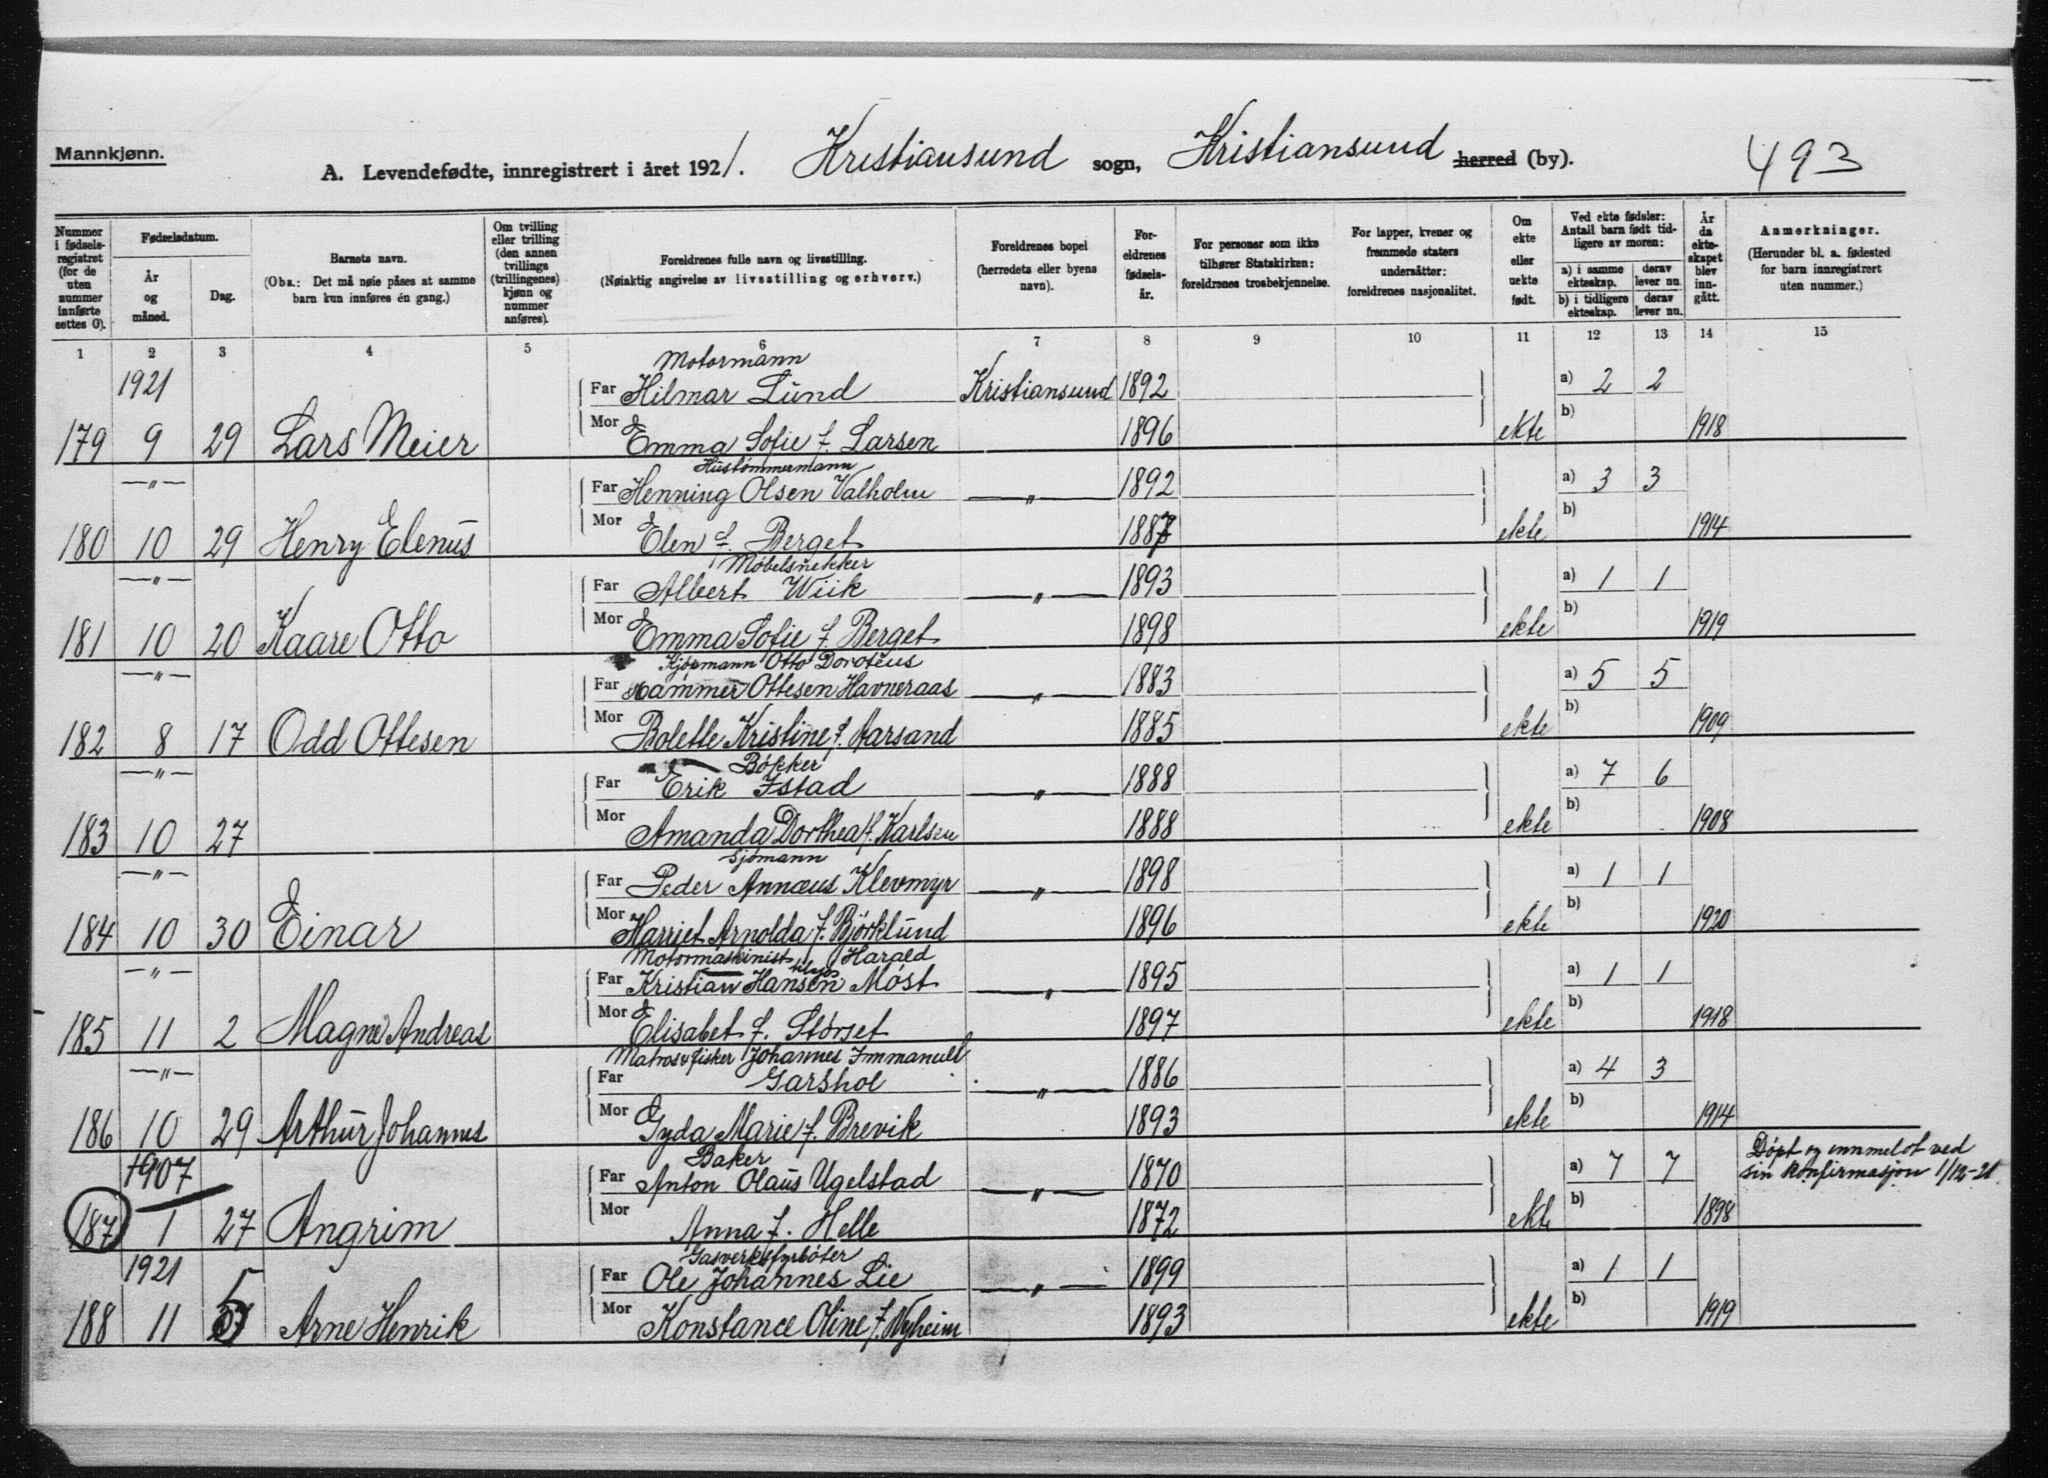 Mannkjønn.
A. Levendefødte, innregistrert i året 1921. Kristiansund sogn, Kristiansund herred (by). 493
Nummer i fødsels-registret (for de uten nummer innførte settes 0).
Fødselsdatum.
År og måned.
Dag.
Barnets navn.
(Obs.: Det må nøie påses at samme barn kun innføres én gang.)
Om tvilling eller trilling (den annen tvillings (trillingenes) kjønn og nummer anføres).
Foreldrenes fulle navn og livsstilling.
(Nøiaktig angivelse av livsstilling og erhverv.)
Foreldrenes bopel (herredets eller byens navn).
For-eldrenes fødsels-år.
For personer som ikke tilhører Statskirken: foreldrenes trosbekjennelse.
For lapper, kvener og fremmede staters undersåtter: foreldrenes nasjonalitet.
Om ekte eller uekte født.
Ved ekte fødsler: Antall barn født tid-ligere av moren:
a) i samme ekteskap. derav lever nu.
b) i tidligere ekteskap. derav lever nu.
År da ekte-skapet blev inn-gått.
Anmerkninger.
(Herunder bl. a. fødested for barn innregistrert uten nummer.)
1 2 3 4 5 6 7 8 9 10 11 12 13 14 15
Motormann
1921 Far Hilmar Lund Kristiansund 1892 a) 2 2
179 9 29 Lars Meier Mor Emma Sofie f. Larsen 1896 ekte b) 1918
Hustømmermann
—"— Far Henning Olsen Valholm —"— 1892 a) 3 3
180 10 29 Henry Elenus Mor Elen f. Berget 1887 ekte b) 1914
Møbelsnekker
—"— Far Albert Wiik —"— 1893 a) 1 1
181 10 20 Kaare Otto Mor Emma Sofie f. Berget 1898 ekte b) 1919
Kjøpmann Otto Doroteus
—"— Far Hammer Ottesen Havneraas —"— 1883 a) 5 5
182 8 17 Odd Ottesen Mor Bolette Kristine f. Aarsand 1885 ekte b) 1909
Bøkker
—"— Far Erik Istad —"— 1888 a) 7 6
183 10 27 Mor Amanda Dorthea f. Karlsen 1888 ekte b) 1908
Sjømann
—"— Far Peder Annæus Klevmyr —"— 1898 a) 1 1
184 10 30 Einar Mor Harriet Arnolda f. Bjørklund 1896 ekte b) 1920
Motormaskinist Harald
—"— Far Kristian Hansen Møst —"— 1895 a) 1 1
185 11 2 Magne Andreas Mor Elisabet f. Størset 1897 ekte b) 1918
Matros & fisker Johannes Immanuell
—"— Far Garshol —"— 1886 a) 4 3
186 10 29 Arthur Johannes Mor Gyda Marie f. Brevik 1893 ekte b) 1914
Baker
1907 Far Anton Olaus Ugelstad —"— 1870 a) 7 7 Døpt og innmeldt ved
sin konfirmasjon 1/12-21
187 1 27 Angrim Mor Anna f. Helle 1872 ekte b) 1898
Gasverksfyrbøter
1921 Far Ole Johannes Lie —"— 1899 a) 1 1
188 11 5 Arne Henrik Mor Konstance Oline f. Nyheim 1893 ekte b) 1919